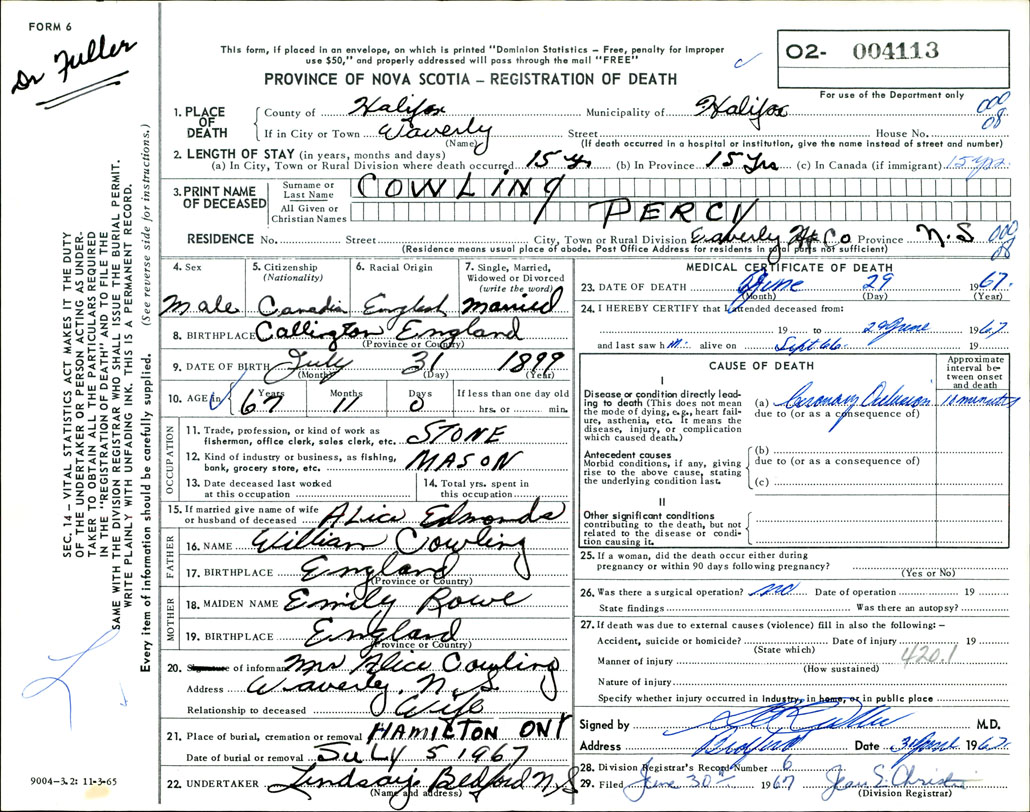 FORM 6
Dr Fuller
This form, if placed in an envelope, on which is printed "Dominion Statistics – Free, penalty for improper
use $50," and properly addressed will pass through the mail "FREE"
PROVINCE OF NOVA SCOTIA – REGISTRATION OF DEATH
O2- 004113
For use of the Department only
000
08
1. PLACE OF DEATH { County of Halifax Municipality of Halifax
If in City or Town Waverly Street House No.
(Name) (If death occurred in a hospital or institution, give the name instead of street and number)
2. LENGTH OF STAY (in years, months and days)
(a) In City, Town or Rural Division where death occurred 15 yrs (b) In Province 15 Yrs (c) In Canada (if immigrant) 15 yrs.
3. PRINT NAME OF DECEASED Surname or Last Name COWLING
All Given or Christian Names PERCY
RESIDENCE No. Street City, Town or Rural Division Waverly Hx Co Province N.S
000
08
(Residence means usual place of abode. Post Office Address for residents in rural parts not sufficient)
SEC. 14 – VITAL STATISTICS ACT MAKES IT THE DUTY
OF THE UNDERTAKER OR PERSON ACTING AS UNDER-
TAKER TO OBTAIN ALL THE PARTICULARS REQUIRED
IN THE "REGISTRATION OF DEATH" AND TO FILE THE
SAME WITH THE DIVISION REGISTRAR WHO SHALL ISSUE THE BURIAL PERMIT.
WRITE PLAINLY WITH UNFADING INK. THIS IS A PERMANENT RECORD.
Every item of information should be carefully supplied. (See reverse side for instructions.)
4. Sex Male
5. Citizenship (Nationality) Canadian
6. Racial Origin English
7. Single, Married, Widowed or Divorced (write the word) Married
8. BIRTHPLACE Callington England
(Province or Country)
9. DATE OF BIRTH July 31 1899
(Month) (Day) (Year)
10. AGE in { Years 67 Months 11 Days 0 If less than one day old
hrs. or min.
OCCUPATION
11. Trade, profession, or kind of work as fisherman, office clerk, sales clerk, etc. STONE
12. Kind of industry or business, as fishing, bank, grocery store, etc. MASON
13. Date deceased last worked at this occupation
14. Total yrs. spent in this occupation
15. If married give name of wife or husband of deceased Alice Edmonds
FATHER
16. NAME William Cowling
17. BIRTHPLACE England
(Province or Country)
MOTHER
18. MAIDEN NAME Emily Rowe
19. BIRTHPLACE England
(Province or Country)
20. Signature of informant Mrs Alice Cowling
Address Waverly, N.S.
Relationship to deceased Wife
21. Place of burial, cremation or removal HAMILTON ONT
Date of burial or removal JULY 5 1967
22. UNDERTAKER Lindsays Bedford N.S
(Name and address)
MEDICAL CERTIFICATE OF DEATH
23. DATE OF DEATH June 29 1967.
(Month) (Day) (Year)
24. I HEREBY CERTIFY that I attended deceased from:
19 to 29 June 1967
and last saw h M. alive on Sept 66. 19
CAUSE OF DEATH
Approximate interval between onset and death
I
Disease or condition directly leading to death (This does not mean the mode of dying, e.g., heart failure, asthenia, etc. It means the disease, injury, or complication which caused death.)
(a) Coronary Occlusion 10 minutes
due to (or as a consequence of)
Antecedent causes
Morbid conditions, if any, giving rise to the above cause, stating the underlying condition last.
(b)
due to (or as a consequence of)
(c)
II
Other significant conditions contributing to the death, but not related to the disease or condition causing it.
25. If a woman, did the death occur either during pregnancy or within 90 days following pregnancy?
(Yes or No)
26. Was there a surgical operation? no Date of operation 19
State findings Was there an autopsy?
27. If death was due to external causes (violence) fill in also the following: –
Accident, suicide or homicide? Date of injury 19
(State which)
420.1
Manner of injury
(How sustained)
Nature of injury
Specify whether injury occurred in industry, in home, or in public place
Signed by M.D.
Address Bedford Date 1967.
28. Division Registrar's Record Number 6
29. Filed June 30th 1967 Jean E. Christie
(Division Registrar)
9004–3.2: 11-3-65